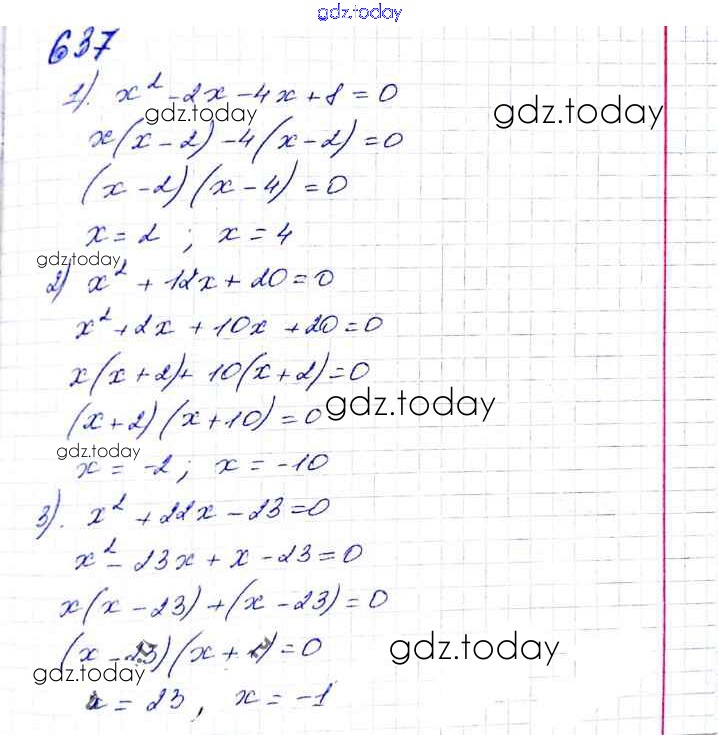 gdz.today
637
1). x² - 2x - 4x + 8 = 0
gdz.today
gdz.today
x(x - 2) - 4(x - 2) = 0
(x - 2)(x - 4) = 0
x = 2 ; x = 4
gdz.today
2) x² + 12x + 20 = 0
x² + 2x + 10x + 20 = 0
x(x + 2) + 10(x + 2) = 0
(x + 2)(x + 10) = 0
gdz.today
gdz.today
x = -2 ; x = -10
3). x² + 22x - 23 = 0
x² - 23x + x - 23 = 0
x(x - 23) + (x - 23) = 0
(x - 23)(x + 1) = 0
gdz.today
gdz.today
x = 23 , x = -1